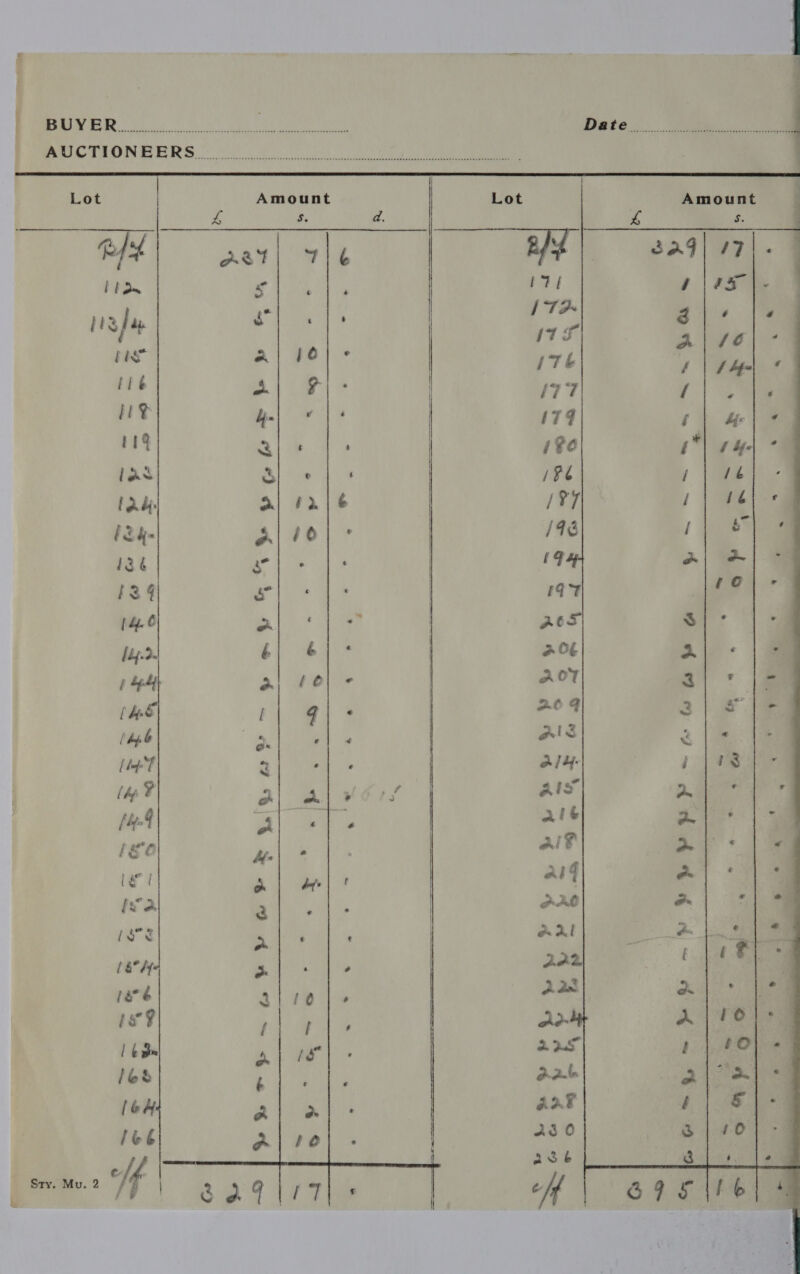 BUYER Date
AUCTIONEERS
Lot Amount Lot Amount
£ s. d. £ s.
B/F 237 7 6
112 5 . .
113/4 5 . .
115 2 10 .
116 2 8 .
118 4 . .
119 3 . .
122 3 . .
124 2 12 6
134 2 10 .
136 5 . .
139 5 . .
140 2 . .
142 6 6 .
144 2 10 .
145 1 9 .
146 2 . .
147 3 . .
148 2 2 .
149 2 . .
150 4 . .
151 2 4 .
152 3 . .
153 2 . .
154 2 . .
156 3 10 .
158 1 1 .
162 2 15 .
163 6 . .
164 2 2 .
166 2 10 .
Sty. Mu. 2 c/f 329 17 .
B/F 329 17 .
171 1 15 .
172 3 . .
175 2 10 .
176 1 14 .
177 1 . .
179 1 4 .
180 1* 14 .
186 1 16 .
187 1 16 .
193 1 5 .
194 2 2 .
197 10 .
205 3 . .
206 2 . .
207 3 . .
209 3 5 .
213 3 . .
214 1 13 .
215 2 . .
216 2 . .
218 2 . .
219 2 . .
220 2 . .
221 2 . .
222 1 18 .
223 2 . .
224 2 10 .
225 1 10 .
226 2 2 .
228 1 5 .
230 3 10 .
236 3 . .
c/f 395 16 .